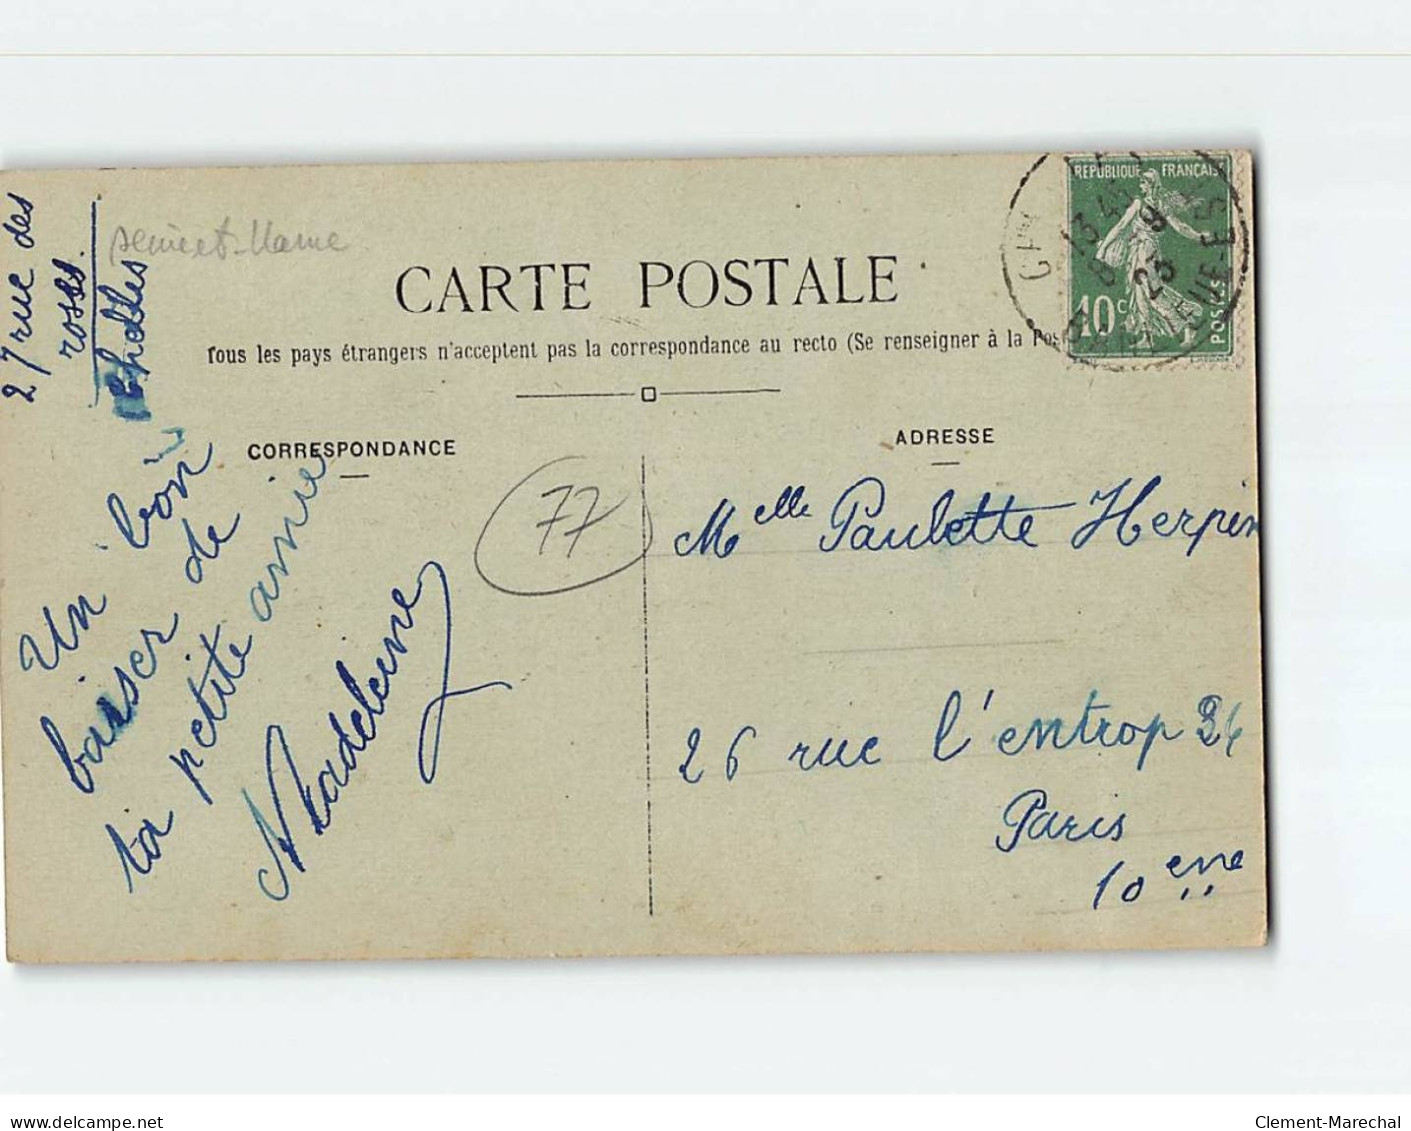 27 rue des
roses
Chelles
seine et Marne
CARTE POSTALE
Tous les pays étrangers n'acceptent pas la correspondance au recto (Se renseigner à la Pos
CORRESPONDANCE
ADRESSE
RÉPUBLIQUE FRANÇAISE
10c
POSTES
13 45
8 - 9
25
77
Un bon
baiser de
ta petite amie
Madeleine
Melle Paulette Herpin
26 rue l'entrop
Paris
10 eme
delcampe.net
Clement-Marechal